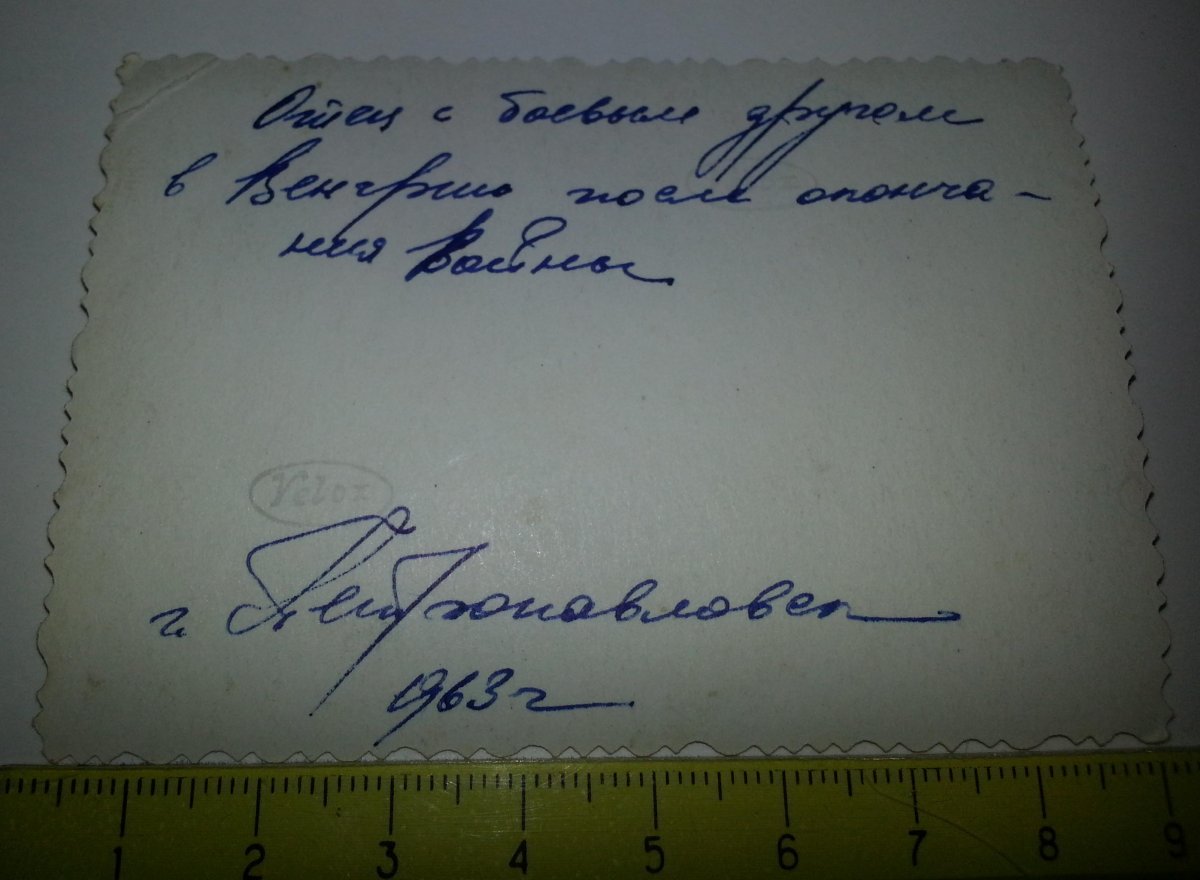 Отец с боевым другом
в Венгрии после оконча-
ния Войны
Velox
г. Петропавловск
1963 г
1 2 3 4 5 6 7 8 9